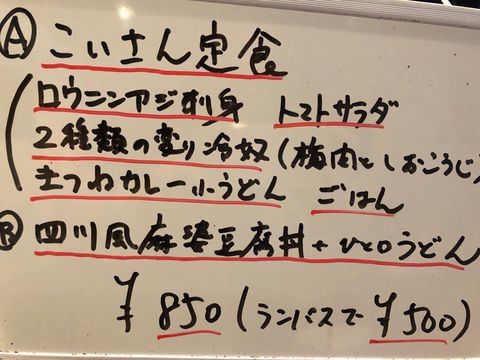 Ⓐ こいさん定食
(ロウニンアジ刺身 トマトサラダ
2種類の変り冷奴(梅肉としおこうじ)
きつねカレー小うどん ごはん
Ⓑ 四川風麻婆豆腐丼+ひと口うどん
¥850(ランパスで¥500)